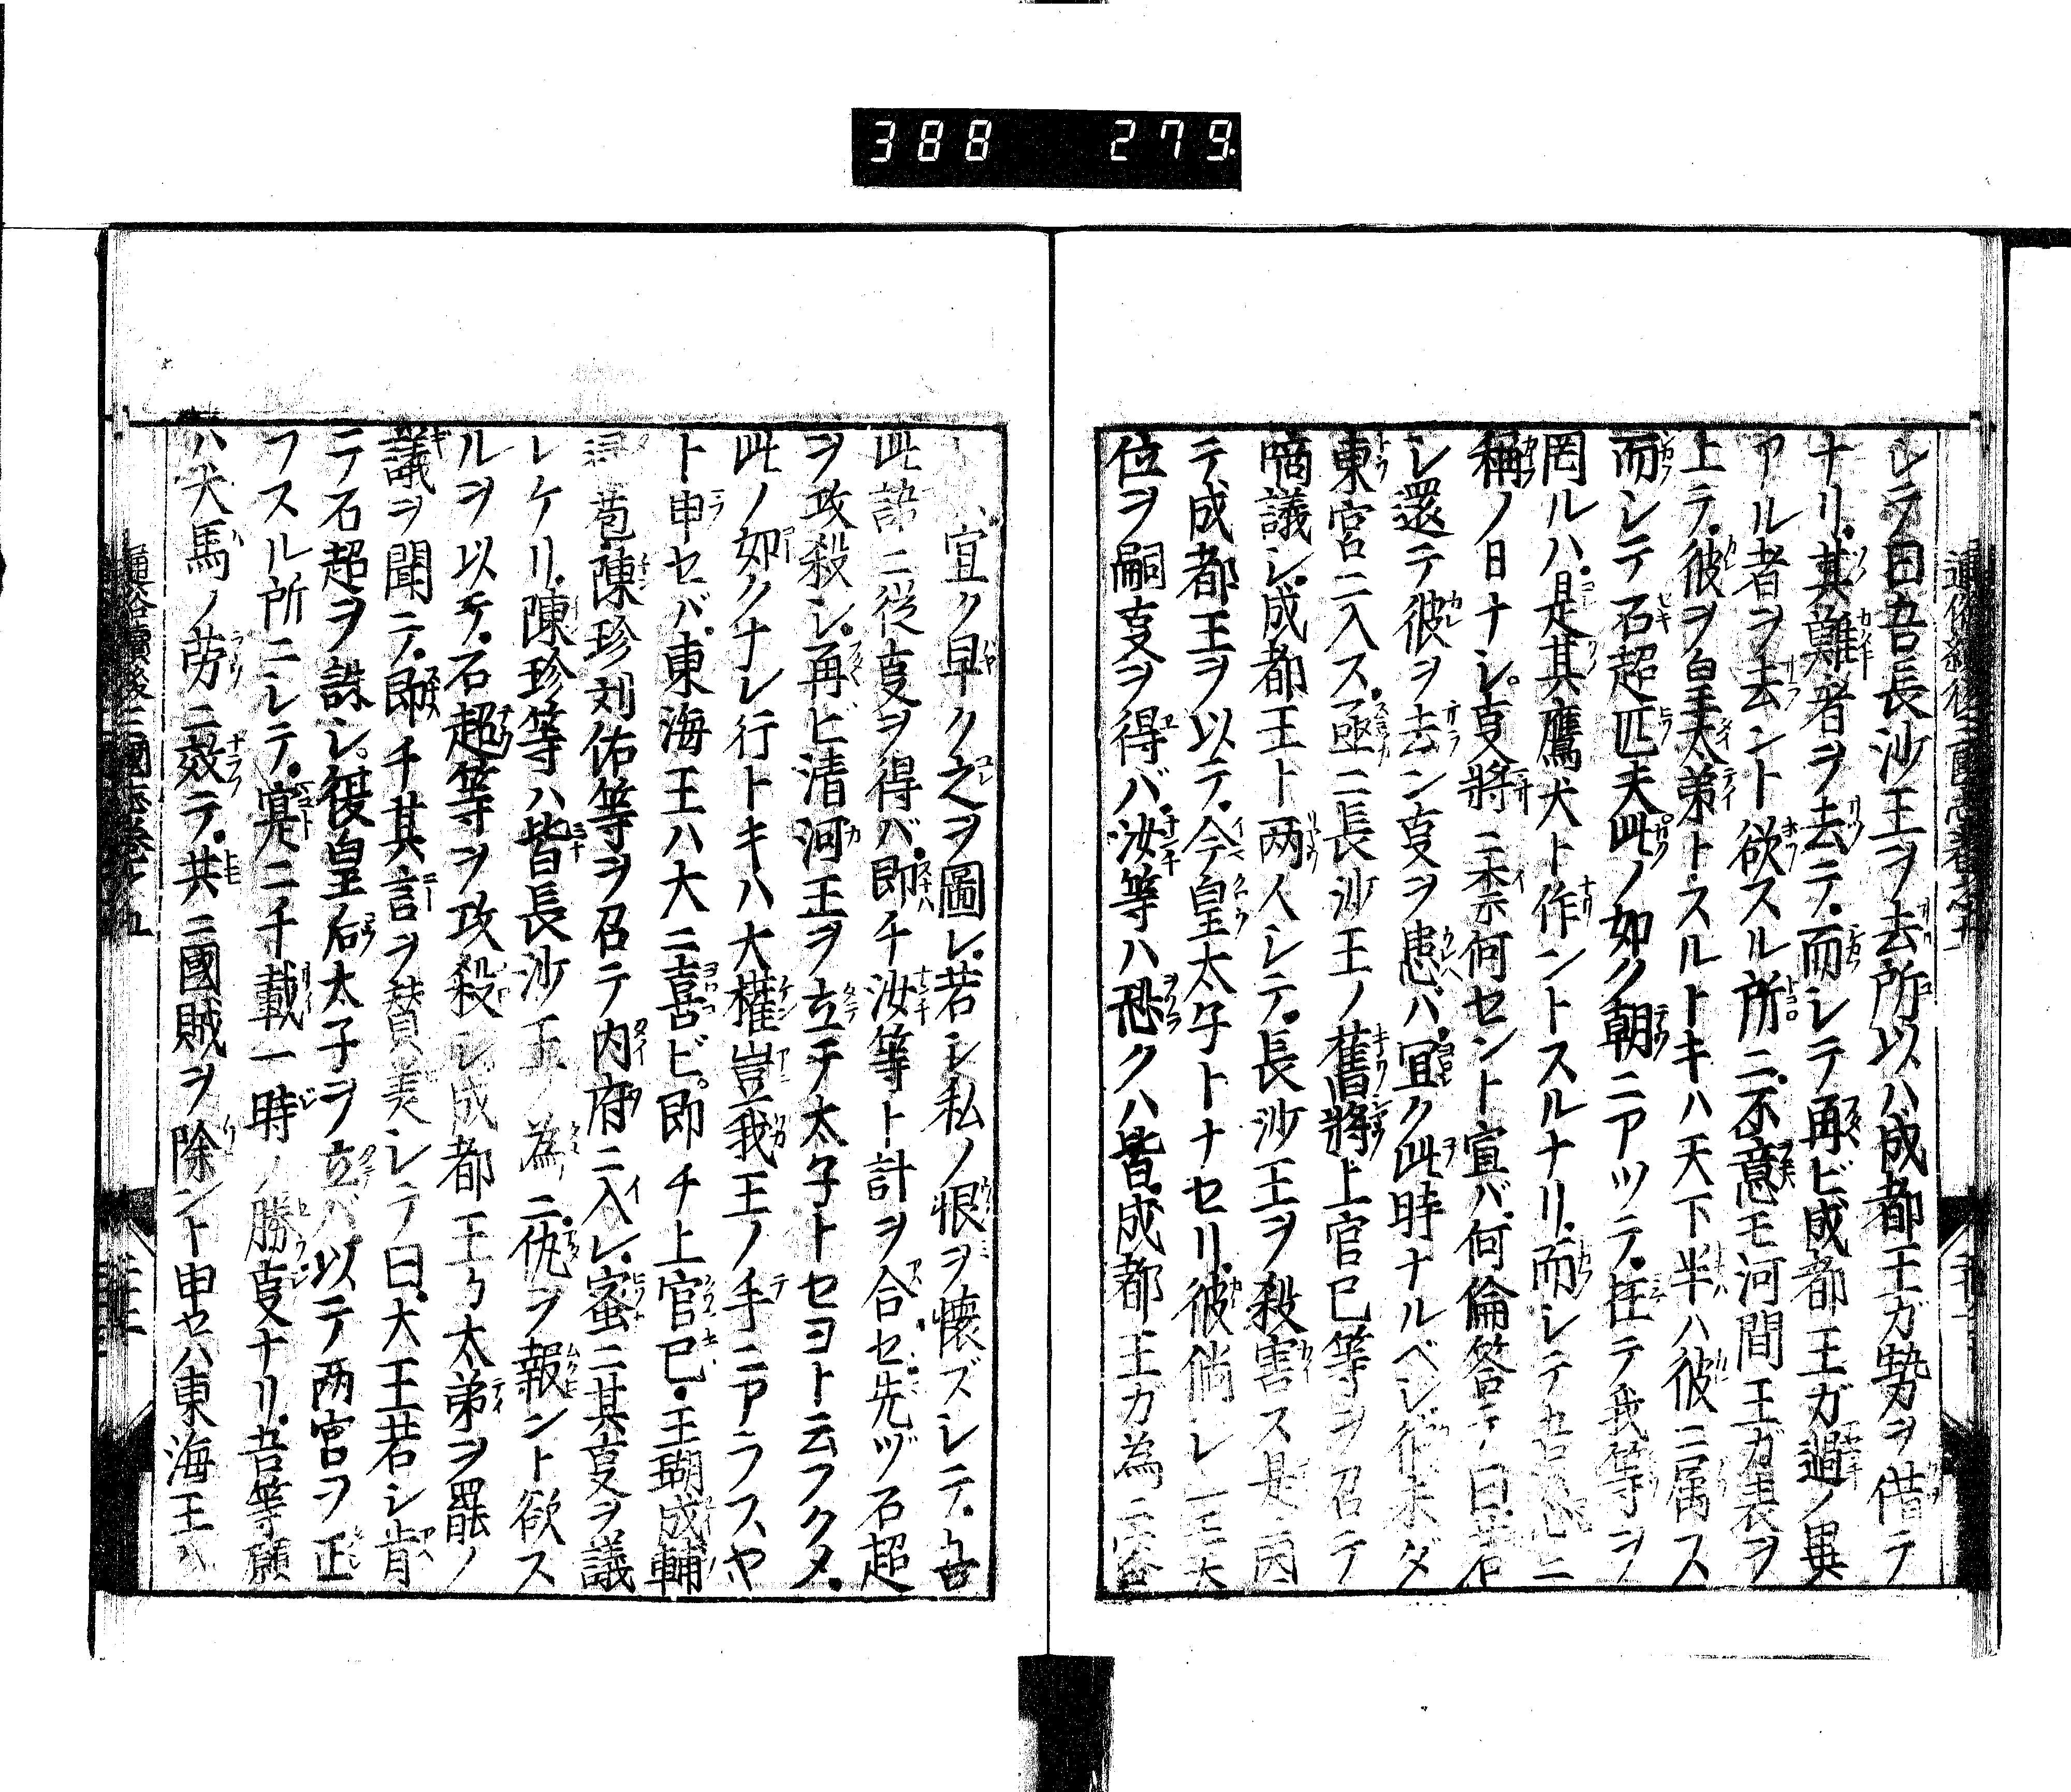 388 279
シテ曰吾長沙王ヲ去所以ハ成都王ガ勢ヲ借テ
ナリ其難者ヲ去テ而シテ再ビ成都王ガ過ノ異
アル者ヲ去ント欲スル所ニ不意モ河間王ガ表ヲ
上テ彼ヲ皇太弟トスルトキハ天下半ハ彼ニ属ス
而シテ石超匹夫此ノ如ク朝ニアツテ抂テ我等ヲ
罔ルハ是其鷹犬ト作ントスルナリ而シテ
稱ノ日ナシ叓將ニ柰何セント寘バ何倫答テ曰若
シ還テ彼ヲ去ン叓ヲ患バ宜ク此時ナルベシ彼未ダ
東宮ニ入ス亟ニ長沙王ノ舊將上官巳等ヲ召テ
嘀議シ成都王ト两人シテ長沙王ヲ殺害ス是ニ因
テ成都王ヲ以テ今皇太子トナセリ彼倘シ
位ヲ嗣叓ヲ得バ汝等ハ恐クハ皆成都王ガ為ニ
宜ク早ク之ヲ圖レ若シ私ノ恨ヲ懐ズシテ
此語ニ従叓ヲ得バ即チ汝等ト計ヲ合セ先ヅ石超
ヲ攻殺シ再ビ清河王ヲ立チ太子トセヨト云フクメ
此ノ如クナレ行トキハ大權豈我王ノ手ニアラスヤ
ト申セバ東海王ハ大ニ喜ビ即チ上官巳王瑚成輔
苞陳珍刘佑等ヲ召テ内府ニ入レ蜜ニ其叓ヲ議
シケリ陳珍等ハ皆長沙王ノ為ニ仇ヲ報ント欲ス
ルヲ以テ石超等ヲ攻殺シ成都王ノ太弟ヲ罷ノ
議ヲ聞テ即チ其言ヲ賛美シテ曰大王若シ肯
テ石超ヲ誅シ復皇后太子ヲ立バ以テ两宮ヲ正
フスル所ニシテ寔ニ千載一時ノ勝叓ナリ吾等願
ハ犬馬ノ劳ニ效テ共ニ國賊ヲ除ント申セハ東海王ハ